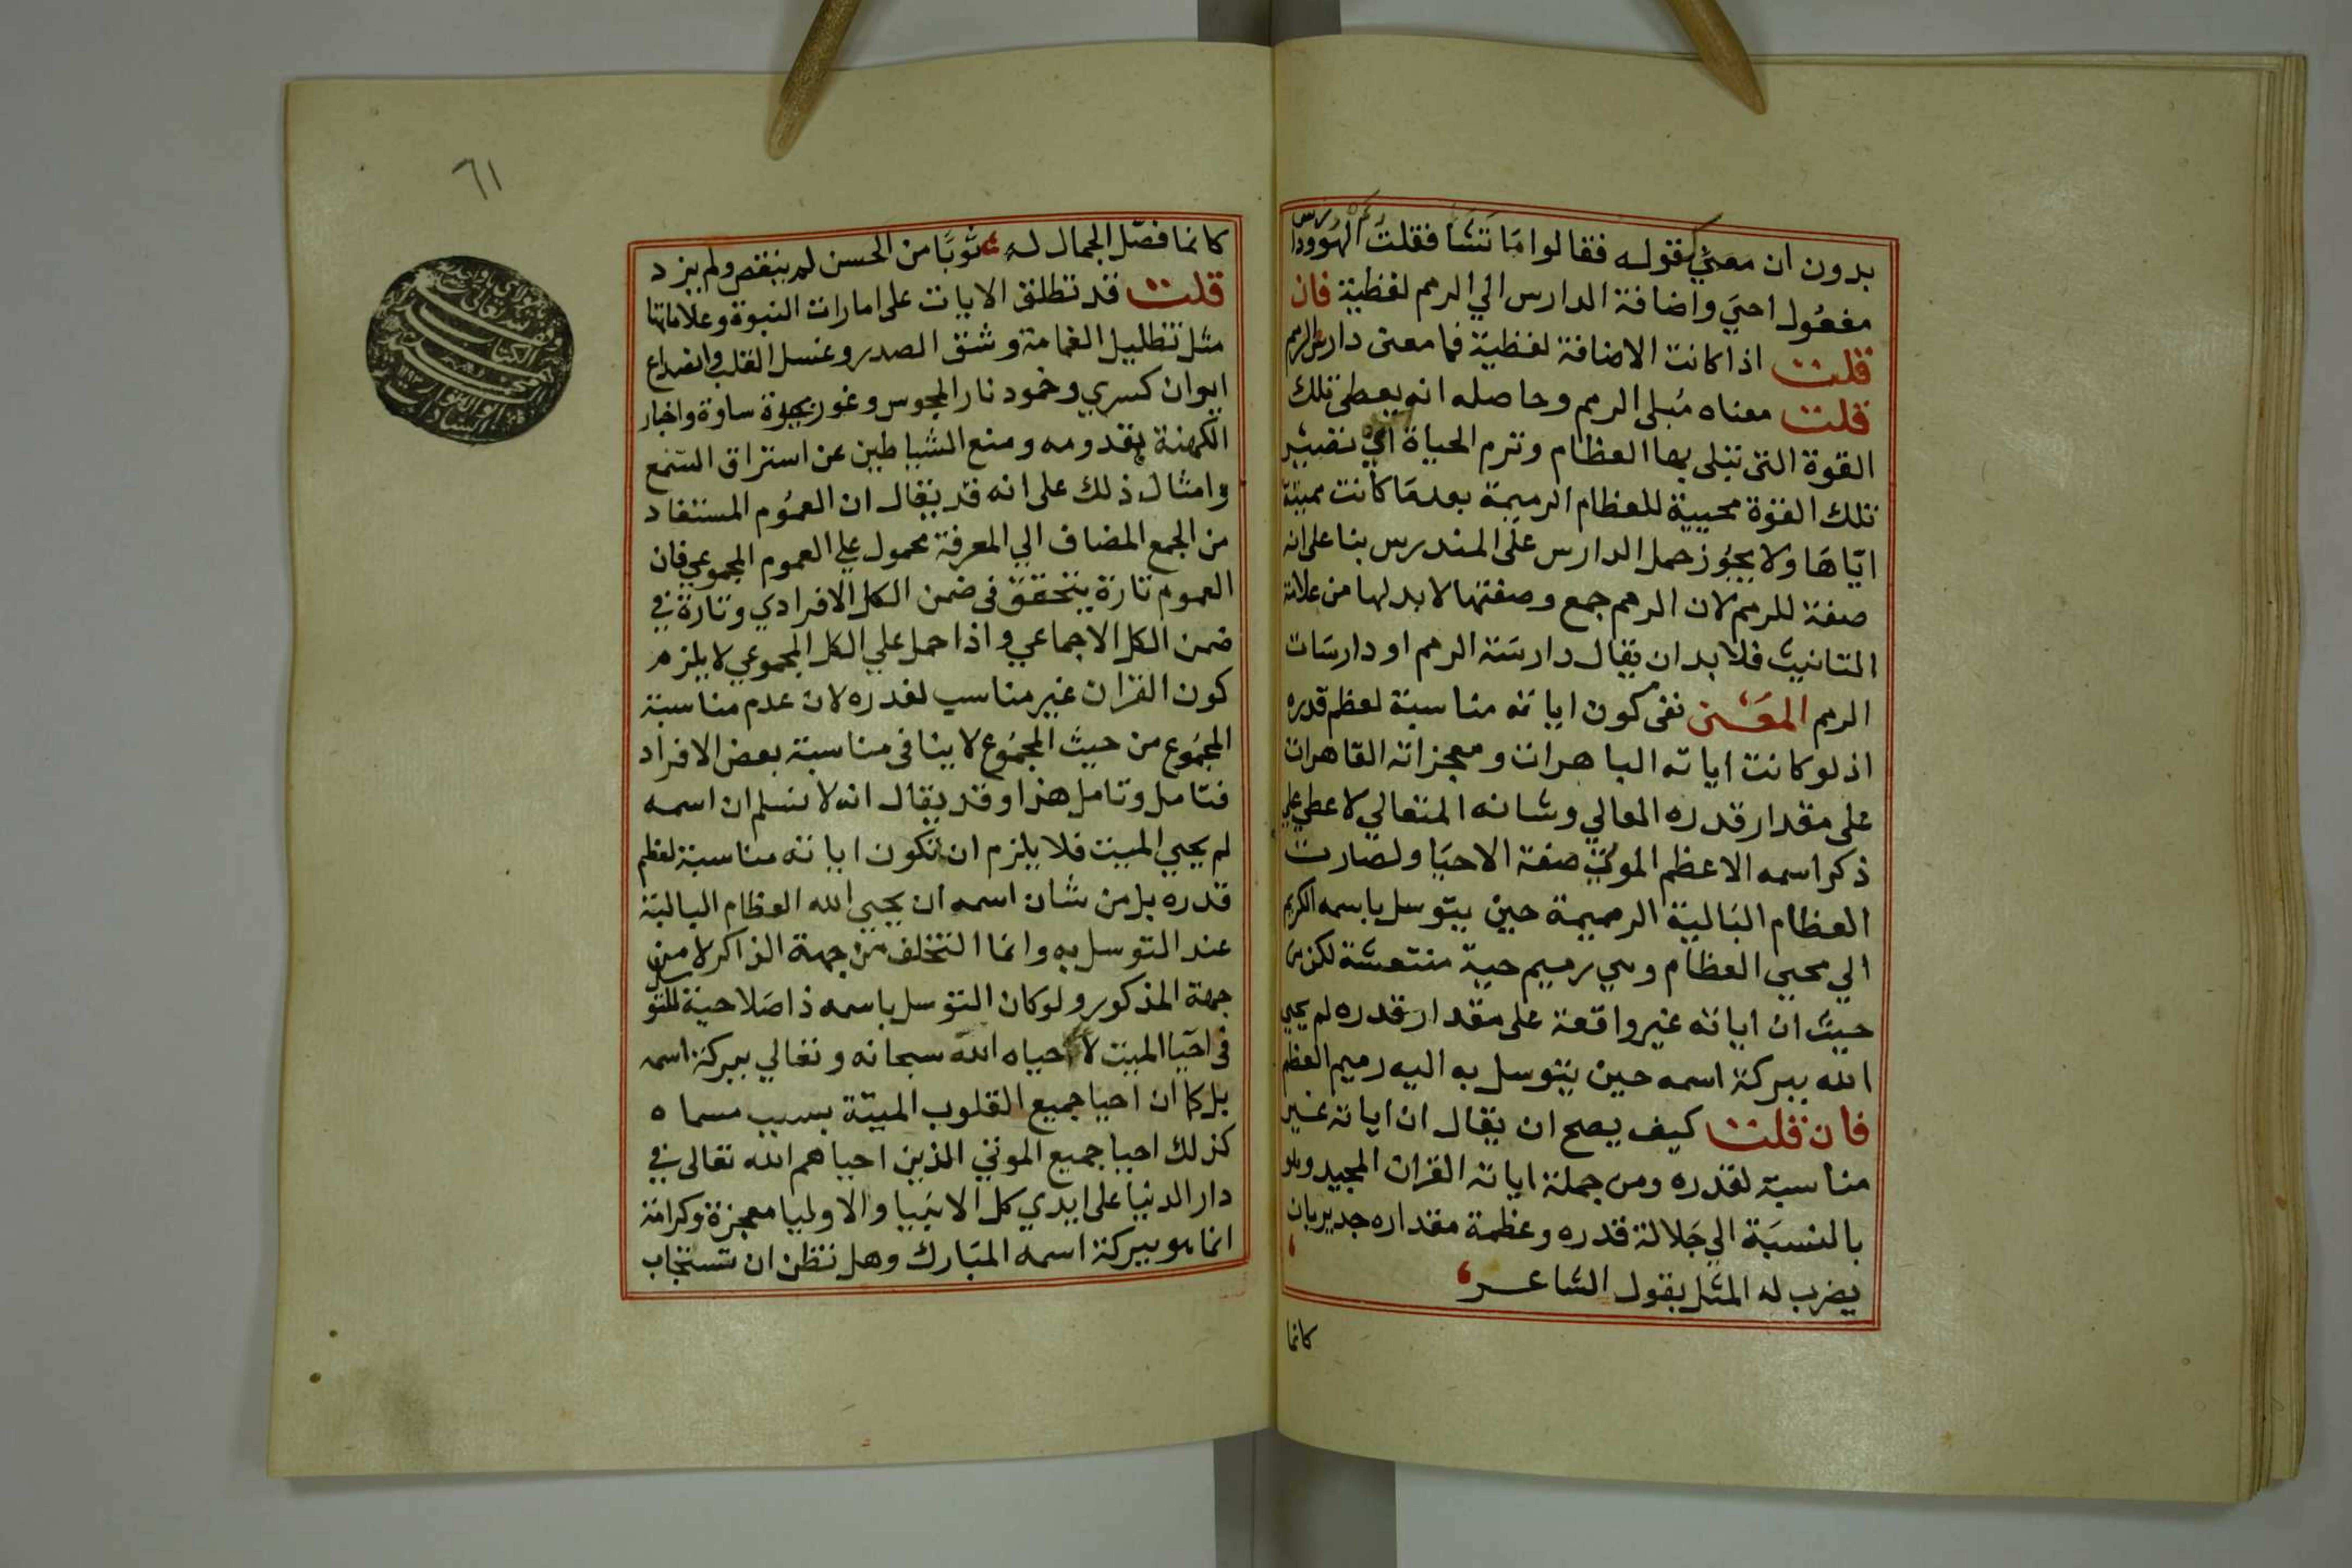 بدون ان معني كقوله فقالوا مَا تَشَا فقلتُ الهُو ودارس
مفعُول احيَي واضافة الدارس الي الرمم لفظية فان
قلت اذا كانت الاضافة لفظية فما معنى دارس الرمم
قلت معناه مُبلى الرمم وحاصله انه يعطى تلك
القوة التى تبلى بها العظام وترم الحياة اي تصير
تلك القوة محيية للعظام الرميمة بعد مَا كانت مميتة
ايّاهَا ولا يجُوز حمل الدارس على المندرس بنا على انه
صفة للرمم لان الرمم جمع وصفتها لا بد لها من علامة
التانيث فلا بد ان يقال دارسَة الرمم او دارسَات
الرمم المعَنى نفى كون اياته مناسبة لعظم قدره
اذ لو كانت اياته الباهرات ومعجزاته القاهرات
على مقدار قدره العالي وشانه المتعالي لاعطي على
ذكر اسمه الاعظم الموتي صفة الاحيَا ولصارت
العظام البَالية الرميمة حين يتوسل باسمه الكريم
الي محيي العظام وهي رميم حية منتعشة لكن من
حيث ان اياته غير واقعة على مقدار قدره لم يحيي
الله ببركة اسمه حين يتوسل به اليه رميم العظم
فان قلت كيف يصح ان يقال ان اياته غير
مناسبة لقدره ومن جملة اياته القران المجيد وهو
بالنسبَة الي جَلالة قدره وعظمة مقداره جدير بان
يضرب له المثل بقول الشاعر
كانما
٦١
كانما فصّل الجمال له ثوبًا من الحسن لم ينقص ولم يزد
قلت قد تطلق الايات على امارات النبوة وعلاماتها
مثل تظليل الغمامة وشق الصدر وغسل القلب وانصداع
ايوان كسري وخمود نار المجوس وغور بحيرة ساوة واخبار
الكهنة بقدومه ومنع الشياطين عن استراق السّمع
وامثال ذلك على انه قد يقال ان العمُوم المستفاد
من الجمع المضاف الي المعرفة محمول علي العموم المجموعي فان
العموم تارة يتحقق فى ضمن الكل الافرادي وتارة في
ضمن الكل الاجماعي واذا حمل علي الكل المجموعي لا يلزم
كون القران غير مناسب لقدره لان عدم مناسبة
المجمُوع من حيث المجمُوع لا ينافى مناسبة بعض الافراد
فتامل وتامل هذا وقد يقال انه لا نسلم ان اسمه
لم يحيي الميت فلا يلزم ان تكون اياته مناسبة لعظم
قدره بل من شان اسمه ان يحيي الله العظام البالية
عند التوسل به وانما التخلف من جهة الذاكر لا من
جهة المذكور ولو كان التوسل باسمه ذا صَلاحية للتوسل
فى احيَا الميت لاحياه الله سبحانه وتعالي ببركة اسمه
بل كما ان احيا جميع القلوب الميتة بسبب مسماه
كذلك احيا جميع الموتي الذين احياهم الله تعالى في
دار الدنيا على ايدي كل الانبيا والاوليا معجزة وكرامة
انما هو ببركة اسمه المبَارك وهل تظن ان تستجاب